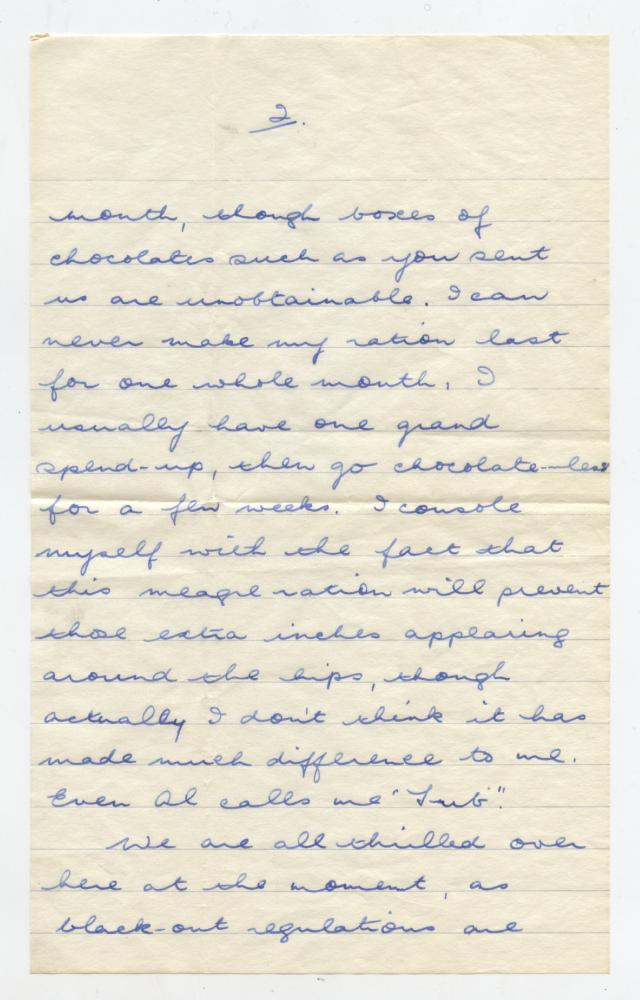 2.
month, though boxes of
chocolates such as you sent
us are unobtainable. I can
never make my ration last
for one whole month, I
usually have one grand
spend-up, then go chocolate-less
for a few weeks. I console
myself with the fact that
this meagre ration will prevent
those extra inches appearing
around the hips, though
actually I don't think it has
made much difference to me.
Even Al calls me "Tub".
We are all thrilled over
here at the moment, as
black-out regulations are